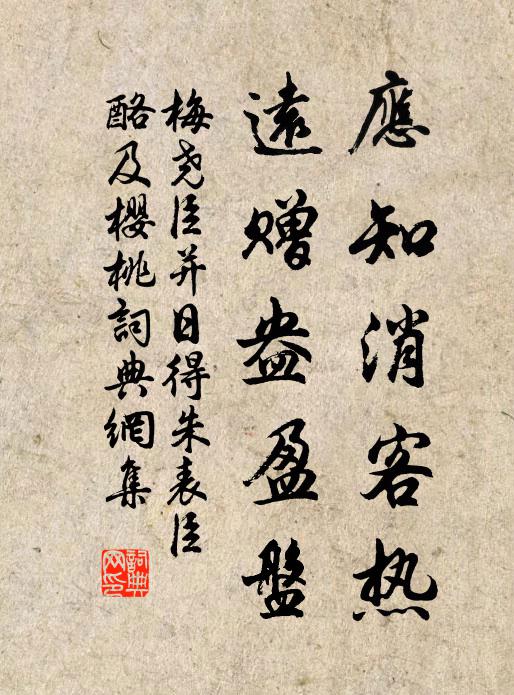 應知消客热
遠贈盎盈盤
梅尧臣并日得朱表臣
酪及櫻桃詞典網集
詞典网印